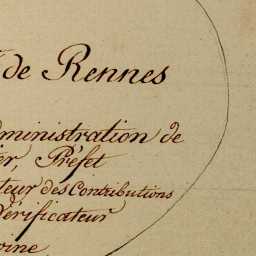 de Rennes
ministration de
er, Préfet
teur des Contributions
Vérificateur
oine